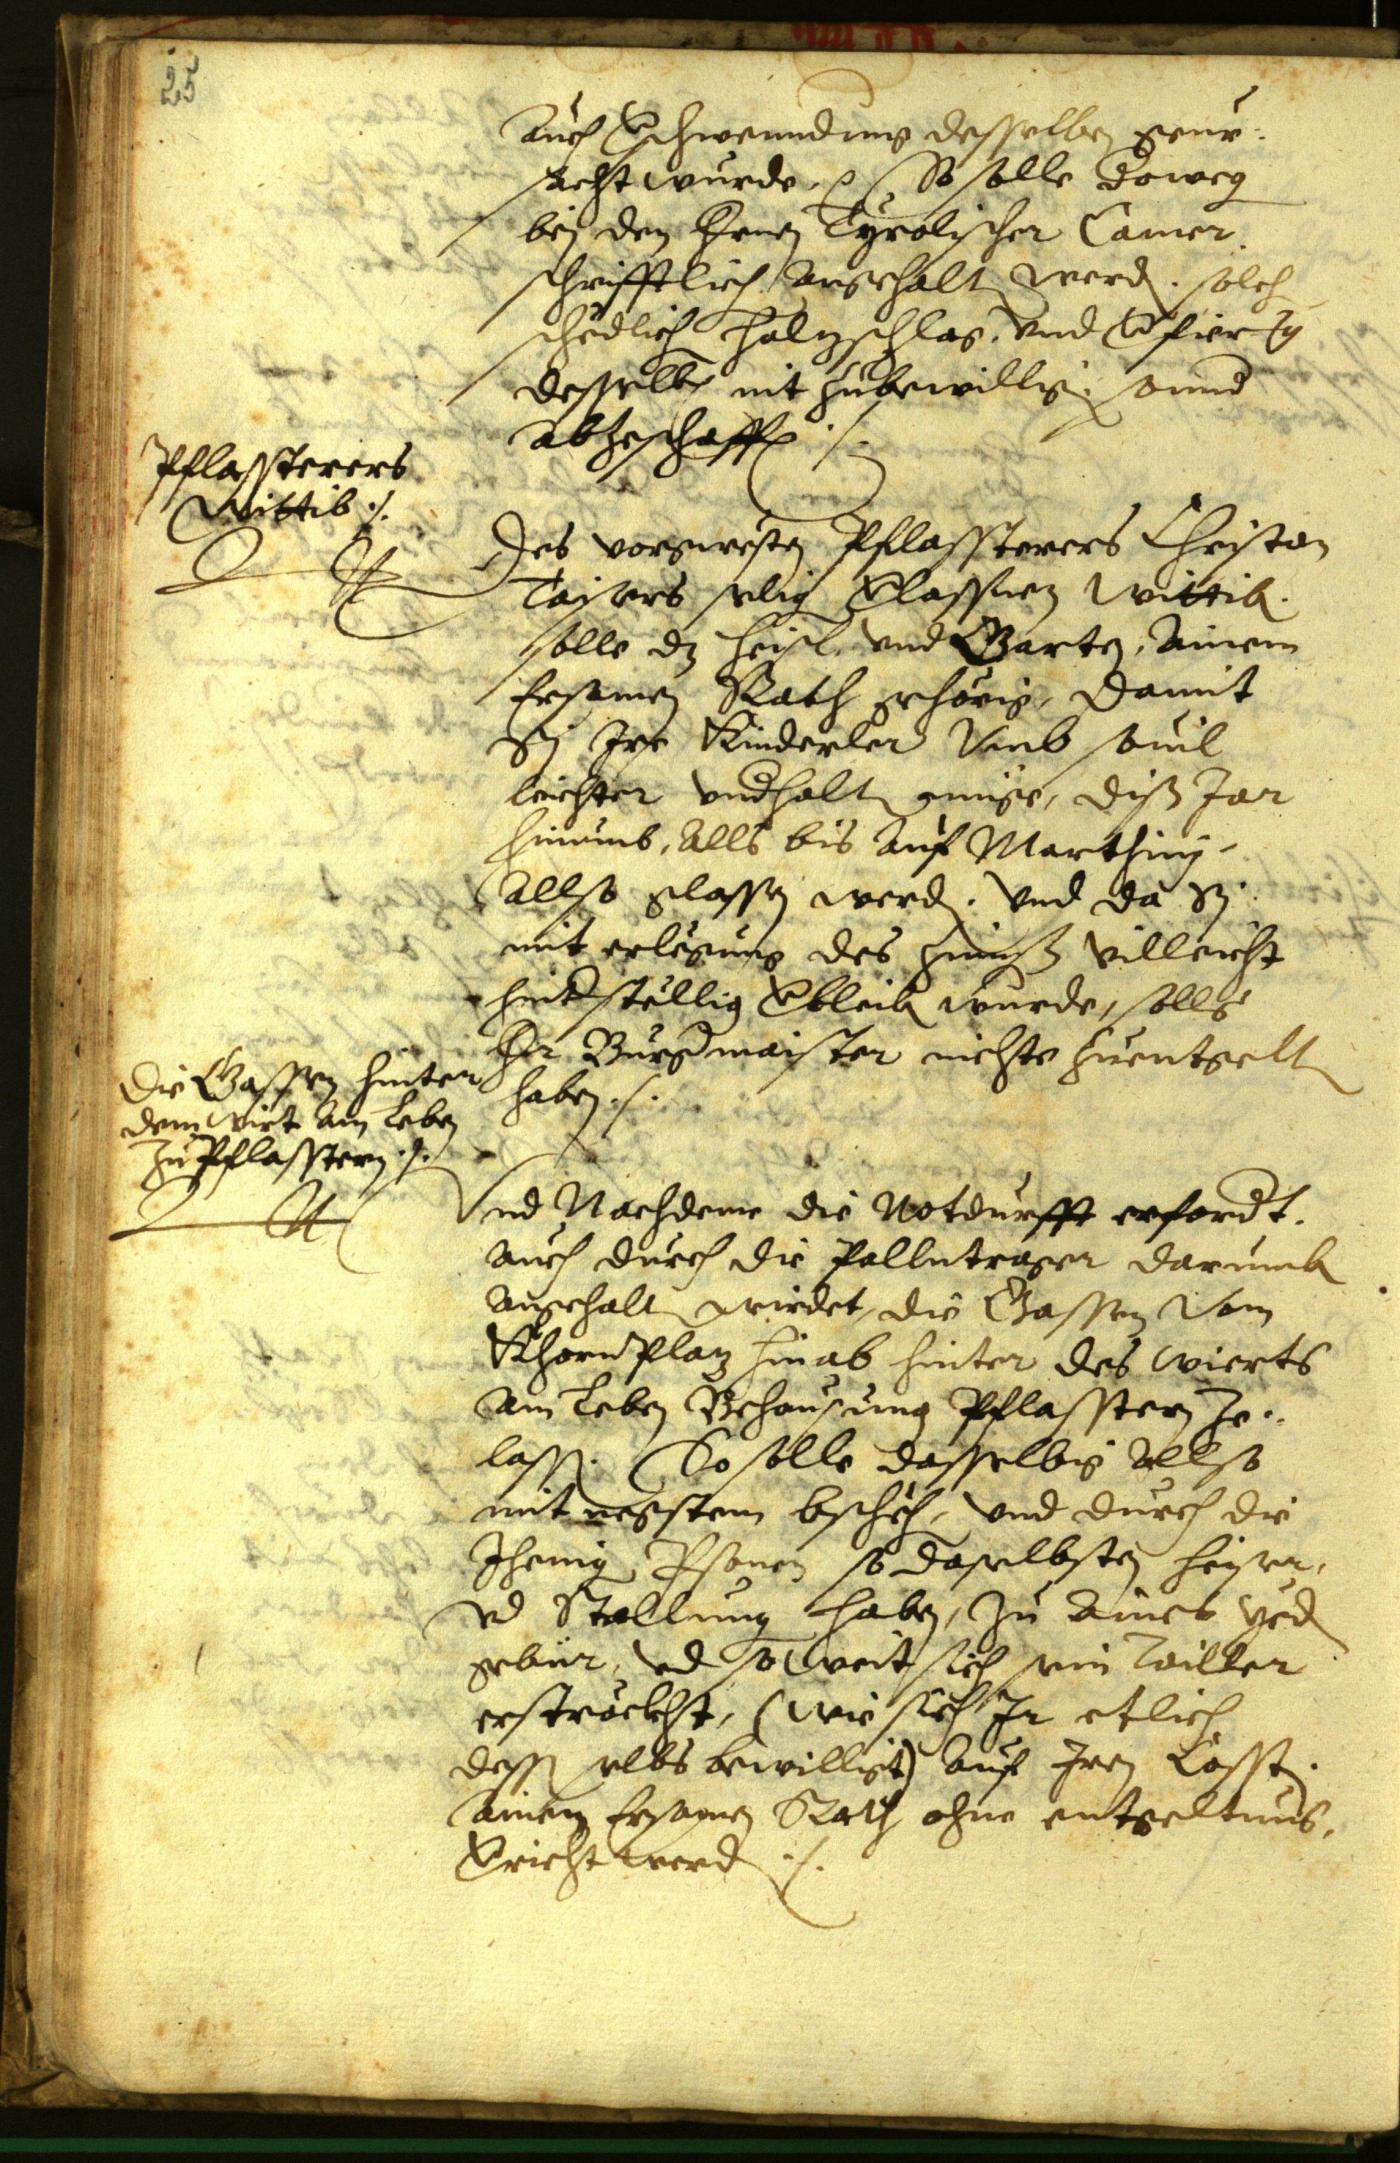 25
auch verschwenndung desselben geur-
sacht wurde. So solle
bej den Herrn Tyrolischer Camer
schrifftlich angehalten werden. solch
schedlich holzschlag und verfierung
desselben nit zubewilligen. sonnder
abzeschaffen ./.
Pflassterers
Wittib ./.
Des vorgewesten Pflassterers Christan
selig verlassnen Wittib.
solle dz heisl. und Garten, ainem
Ersamen Rath gehörig, damit
Sy Ire Kinderler Umb souil
leichter underhalten müge, diss Jar
hinumb, Alls bis auf Marthinj
allso gelassen werden. Und da Sy
mit erlegung des Zinnss villeicht
hinderstellig verbleiben wurde, solls
Herr Burgermaister nichts zuentgelten
haben ./.
Die Gassen hinter
dem Wirt am Leben
zu Pflasstern ./.
Und Nachdeme die Notdurfft erfordert.
auch durch die Pallntrager darumben
angehalten wirdet, die Gassen vom
Khornplaz hinab hinter des Wierts
am Leben Behausung Pflasstern ze-
lassen. So solle dasselbig allso
mit negstem beschehen, und durch die
Jhenig Personen so daselbsten heiser,
und Stallung haben, zu aines yeden
gebür, und so weit sich sein Tailler
erstreckht, (wie sich Ir etlich
dessen selbs bewilligt) auf Iren Cossten.
ainem Ersamen Rath ohne entgeltnus,
verricht werden ./.